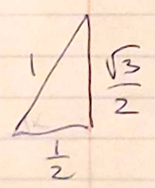 1
√3/2
1/2